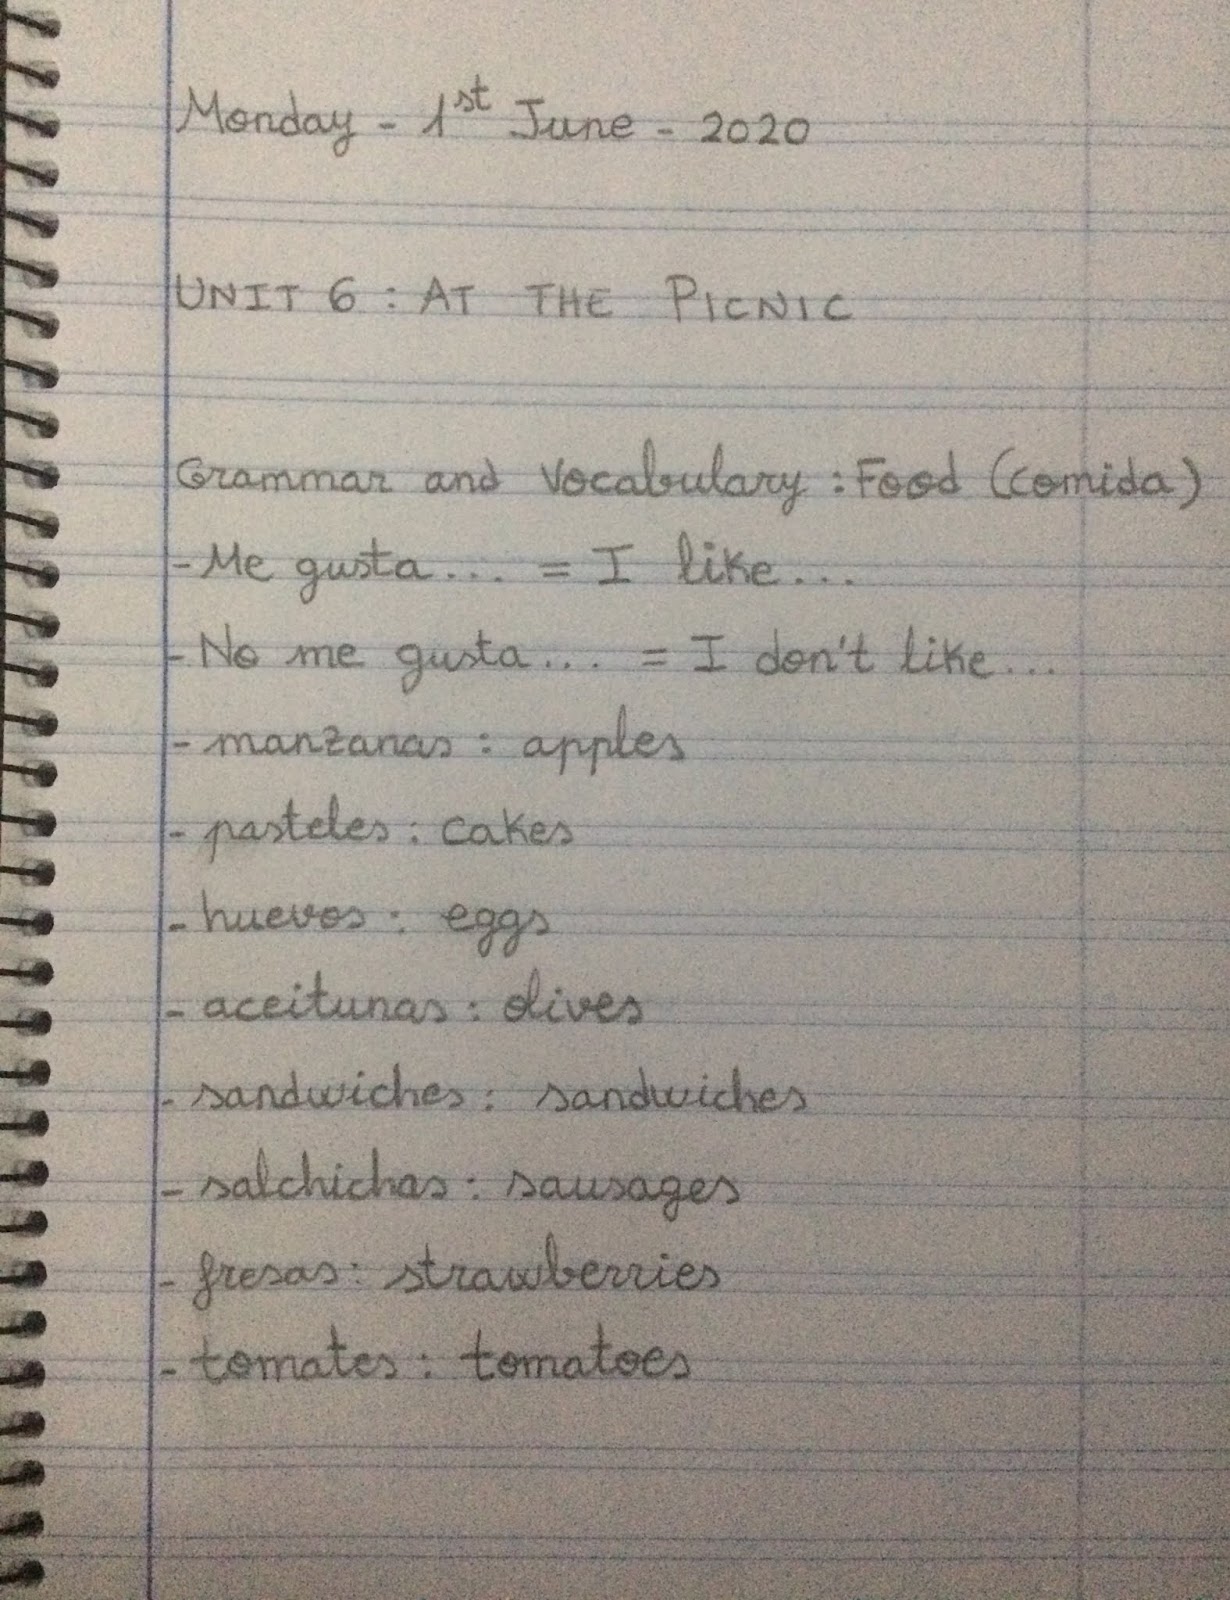 Monday - 1st June - 2020
UNIT 6 : AT THE PICNIC
Grammar and Vocabulary : Food (comida)
- Me gusta... = I like...
- No me gusta... = I don't like...
- manzanas : apples
- pasteles : cakes
- huevos : eggs
- aceitunas : olives
- sandwiches : sandwiches
- salchichas : sausages
- fresas : strawberries
- tomates : tomatoes